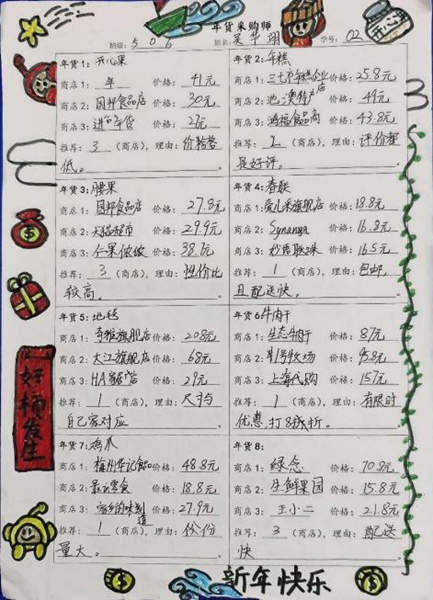 年货采购师
班级: 506 姓名: 吴华翊 学号: 02
年货1: 开心果
商店1: 年 价格: 41元
商店2: 国邦食品店 价格: 30元
商店3: 进的年货 价格:
推荐: 3 (商店), 理由: 价格
低。
年货2: 年糕
商店1: 三七市年糕企业店 价格: 25.8元
商店2: 池 澳特产店 价格: 49元
商店3: 鸿福食品商 价格: 43.8元
推荐: 1 (商店), 理由: 评价都
是好评。
年货3: 腰果
商店1: 国邦食品店 价格: 27.8元
商店2: 天猫超市 价格: 29.9元
商店3: 仁果依依 价格: 38.7元
推荐: 3 (商店), 理由: 性价比
较高。
年货4: 春联
商店1: 旗舰店 价格: 18.8元
商店2: Synanya 价格: 16.8元
商店3: 联珠 价格: 16.5元
推荐: 1 (商店), 理由: 包邮,
且配送快。
年货5: 地毯
商店1: 旗舰店 价格: 208元
商店2: 大江旗舰店 价格: 68元
商店3: HA 店 价格: 29元
推荐: 1 (商店), 理由: 尺寸与
自己家对应
年货6: 牛肉干
商店1: 生态牛肉干 价格: 87元
商店2: 牧场 价格: 95.8元
商店3: 上海代购 价格: 157元
推荐: 1 (商店), 理由: 有限时
优惠,打8折。
年货7: 鸡爪
商店1: 梅州华记食品 价格: 48.8元
商店2: 零食 价格: 18.8元
商店3: 家乡的味道 价格: 27.9元
推荐: 1 (商店), 理由: 份份
量大。
年货8:
商店1: 绿念 价格: 70.8元
商店2: 生鲜果园 价格: 15.8元
商店3: 王小二 价格: 21.8元
推荐: 3 (商店), 理由: 配送
快
好柿发生
新年快乐